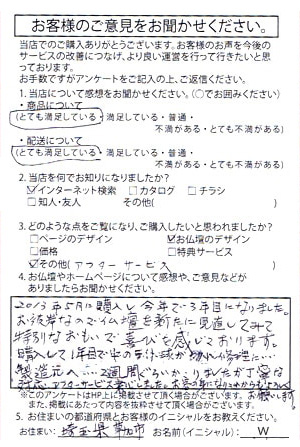 お客様のご意見をお聞かせください。
当店でのご購入ありがとうございます。お客様のお声を今後の
サービスの改善につなげ、より良い運営を行って行きたいと思
っております。
お手数ですがアンケートをご記入の上、ご返信ください。
1. 当店について感想をお聞かせください。(○でお囲みください)
・商品について
(とても満足している・満足している・普通・
不満がある・とても不満がある)
・配送について
(とても満足している・満足している・普通・
不満がある・とても不満がある)
2. 当店を何でお知りになりましたか?
☑インターネット検索 □カタログ □チラシ
□知人・友人 その他( )
3. どのような点をご覧になり、ご購入したいと思われましたか?
□ページのデザイン ☑お仏壇のデザイン
□価格 □特典サービス
☑その他(アフターサービス)
4. お仏壇やホームページについて感想や、ご意見などが
ありましたらお聞かせください。
2013年5月に購入し今年で3年目になりました。
お彼岸なので仏壇を新たに見直してみて
特別なおもいで喜びを感じております。
購入して1年目で中の電球が切れ修理に…
製造元へ…2週間ぐらいかかりましたが丁寧な
対応 アフターサービス
※このアンケートはHP上に掲載させて頂く場合がございます。
また、掲載にあたって内容を抜粋させて頂く場合がございます。
5. お住まいの都道府県とお客様のイニシャルをお教えください。
お住まい: 埼玉県草加市 (イニシャル): W